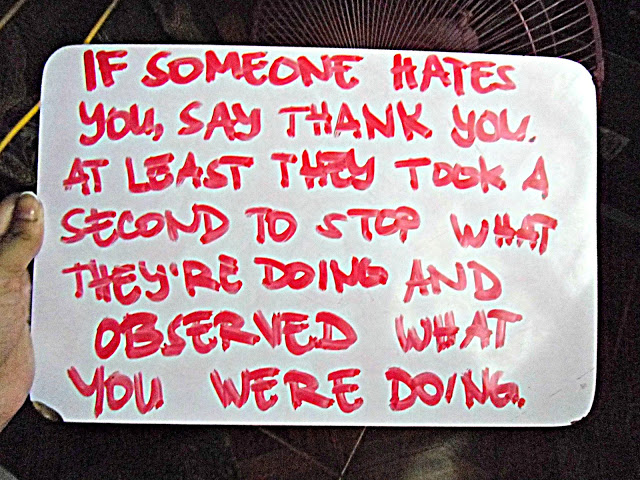 IF SOMEONE HATES
YOU, SAY THANK YOU.
AT LEAST THEY TOOK A
SECOND TO STOP WHAT
THEY'RE DOING AND
OBSERVED WHAT
YOU WERE DOING.